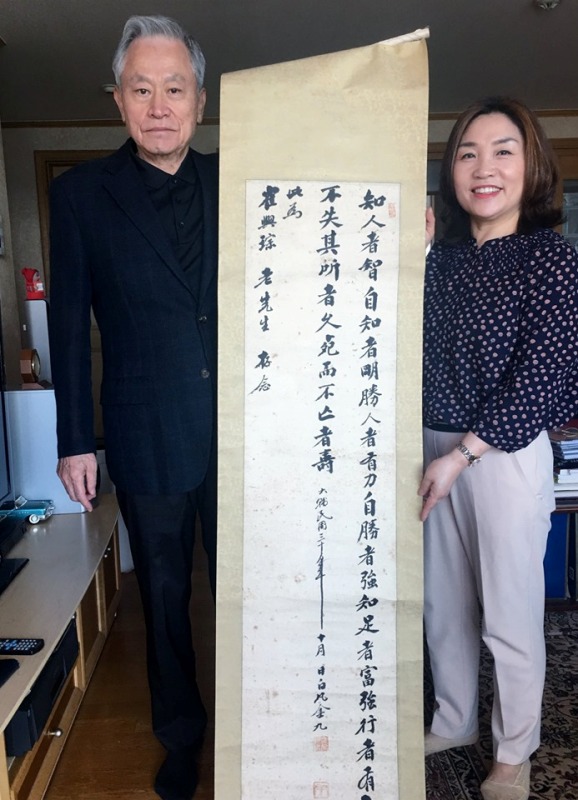 知人者智自知者明勝人者有力自勝者強知足者富強行者有
不失其所者久死而不亡者壽 大韓民國三十年 十月 日白凡金九
此為
崔興琮 老先生 存念